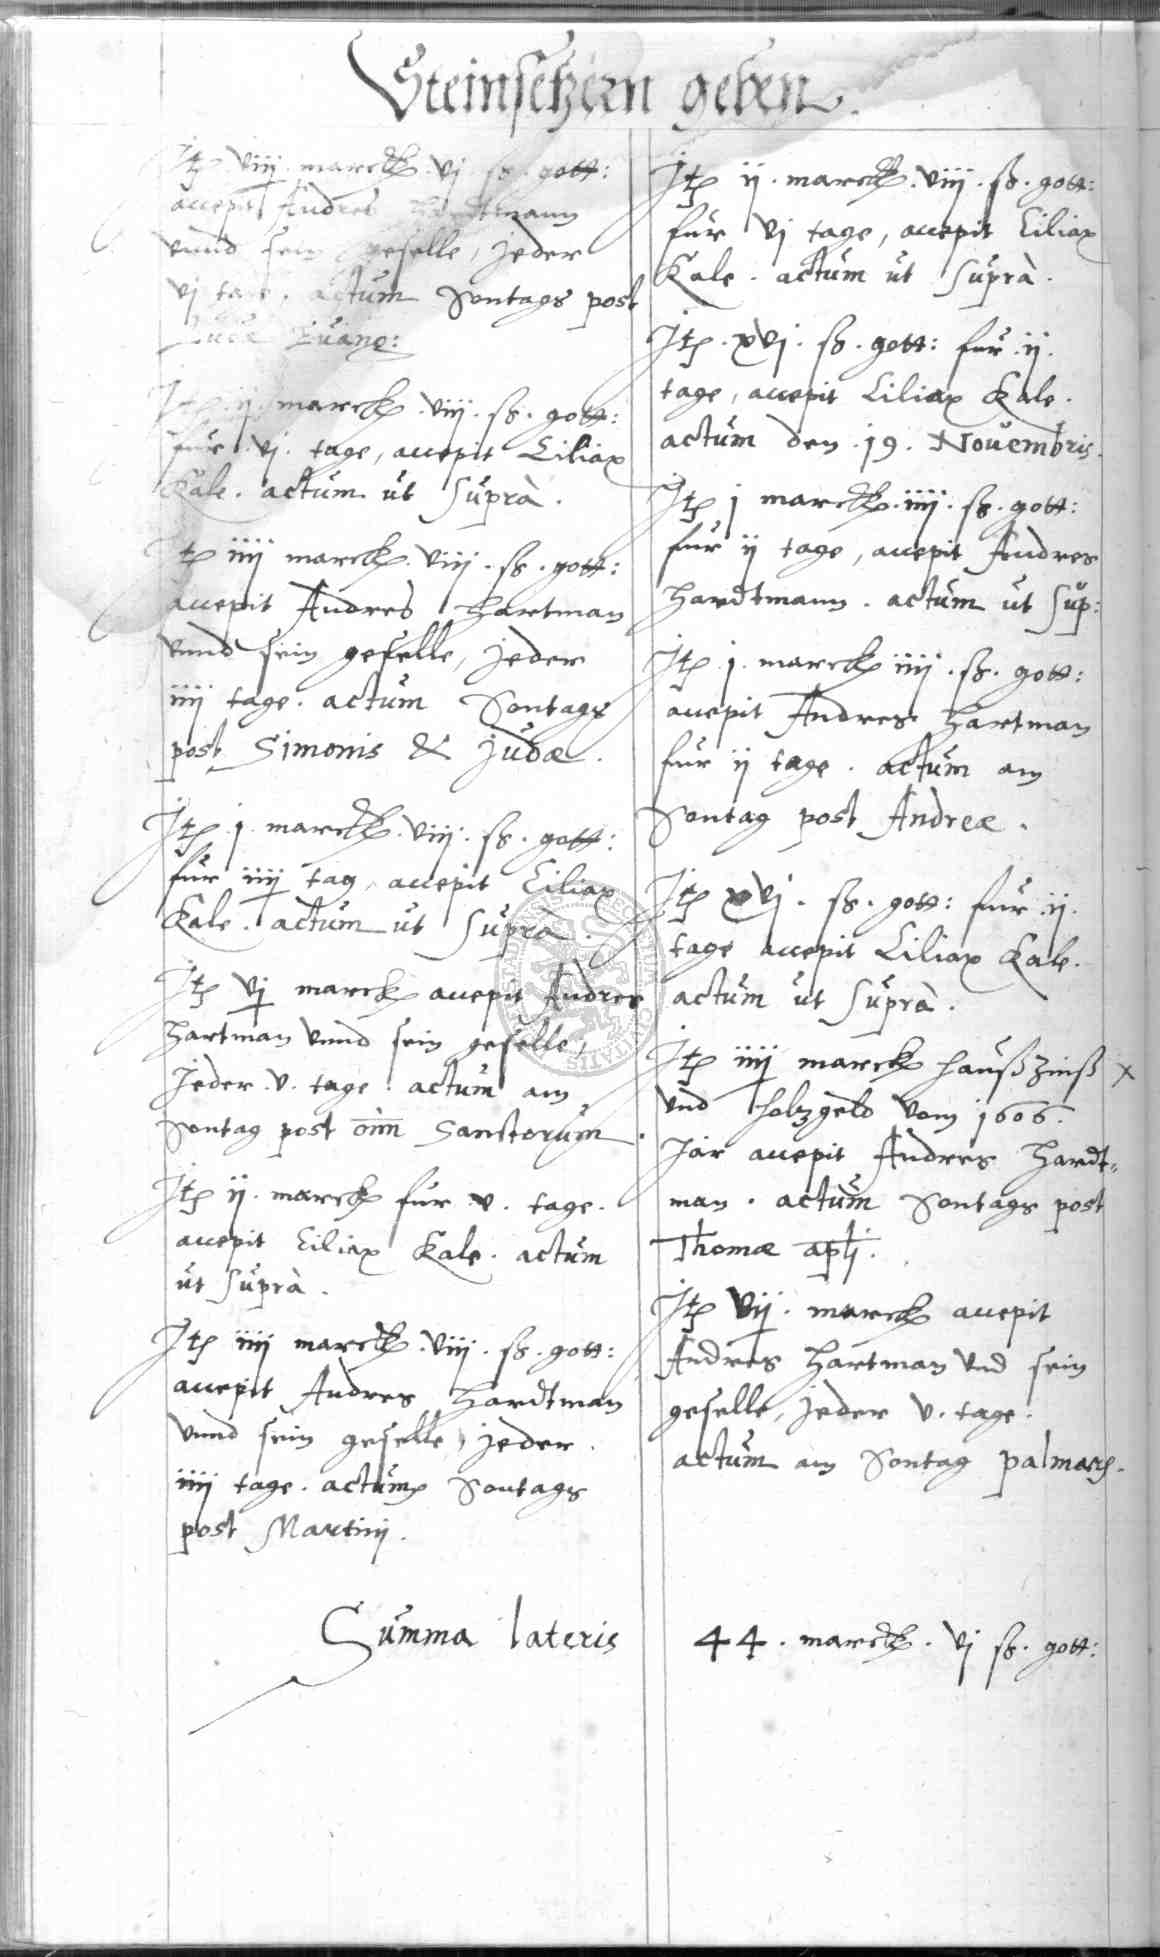 Steinsetzern geben.
Itē viiij. marck. vj. ß. gott:
accepit Andres Hardtmann
vnnd sein geselle, jeder
vj tage. actum Sontags post
Lucæ Euang:
Itē ij. marck. viij. ß. gott:
fur vj. tage, accepit Ciliax
Kale. actum ut suprà.
Itē iiij marck. viij. ß. gott:
accepit Andres Hartman
vnnd sein geselle, jeder
iiij tage. actum Sontags
post Simonis & Judæ.
Itē j. marck. viij. ß. gott:
fur iiij tag, accepit Ciliax
Kale. actum ut suprà.
Itē vj marck accepit Andres
Hartman vnnd sein geselle,
Jeder v. tage. actum am
Sontag post oīm Sanctorum.
Itē ij. marck fur v. tage.
accepit Ciliax Kale. actum
ut suprà.
Itē iiij marck. viij. ß. gott:
accepit Andres Hardtman
vnnd sein geselle, jeder
iiij tage. actum Sontags
post Martinj.
Itē ij. marck. viij. ß. gott:
fur vj tage, accepit Ciliax
Kale. actum ut suprà.
Itē. xvj. ß. gott: fur ij.
tage, accepit Ciliax Kale.
actum den 19. Nouembris.
Itē j marck. iiij. ß. gott:
fur ij tage, accepit Andres
Hardtmann. actum ut sup:
Itē j. marck iiij. ß. gott:
accepit Andres Hartman
fur ij tage. actum am
Sontag post Andreæ.
Itē xvj. ß. gott: fur ij.
tage accepit Ciliax Kale.
actum ut suprà.
Itē iiij marck haußzinß x
vnd holzgeld vom 1606.
Jar accepit Andres Hardt„
man. actum Sontags post
Thomæ aplj.
Itē vij. marck accepit
Andres Hartman vnd sein
geselle, jeder v. tage.
actum am Sontag palmarū.
Summa lateris 44. marck. vj ß. gott: